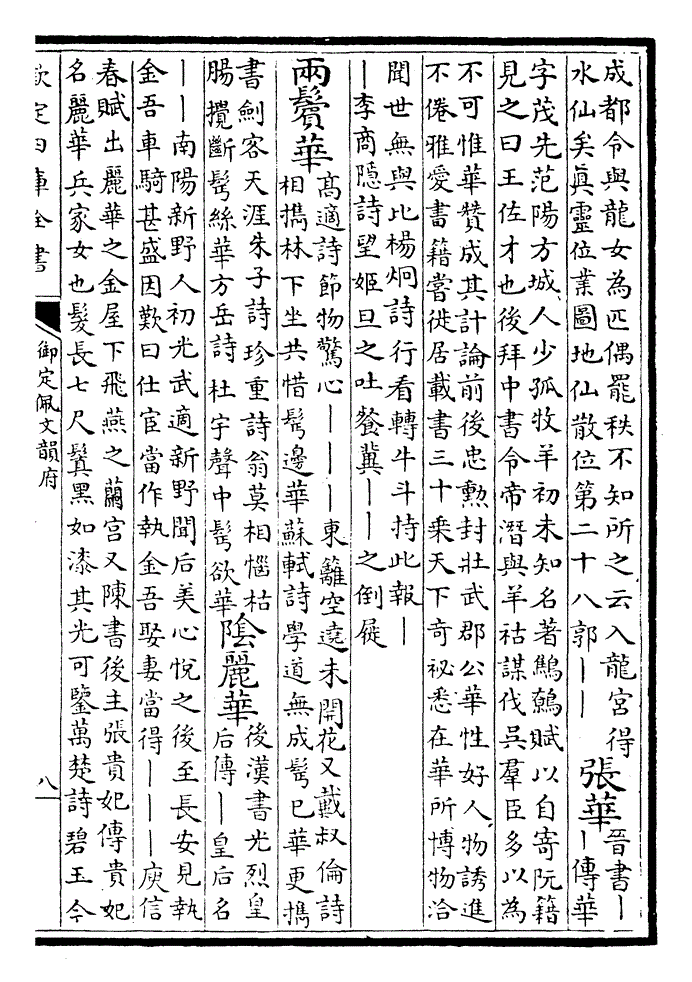 成都令與龍女為匹偶罷秩不知所之云入龍宮得
水仙矣真靈位業圖地仙散位第二十八郭｜｜
張華
晉書｜
｜傳華
字茂先范陽方城人少孤牧羊初未知名著鷦鷯賦以自寄阮籍
見之曰王佐才也後拜中書令帝潛與羊祜謀伐吳羣臣多以為
不可惟華贊成其計論前後忠勲封壯武郡公華性好人物誘進
不倦雅愛書籍嘗徙居載書三十乗天下奇祕悉在華所博物洽
聞世無與比楊炯詩行看轉牛斗持此報｜
｜李商隱詩望姬旦之吐餐冀｜｜之倒屣
兩鬢華
高適詩節物驚心｜｜｜東籬空遶未開花又戴叔倫詩
相攜林下坐共惜鬢邊華蘇軾詩學道無成鬢已華更攜
書劍客天涯朱子詩珍重詩翁莫相惱枯
腸攪斷鬢絲華方岳詩杜宇聲中鬢欲華
陰麗華
後漢書光烈皇
后傳｜皇后名
｜｜南陽新野人初光武適新野聞后美心悅之後至長安見執
金吾車騎甚盛因歎曰仕宦當作執金吾娶妻當得｜｜｜庾信
春賦出麗華之金屋下飛燕之蘭宮又陳書後主張貴妃傳貴妃
名麗華兵家女也髮長七尺鬒黑如漆其光可鑒萬楚詩碧玉今
欽定四庫全書
御定佩文韻府
八